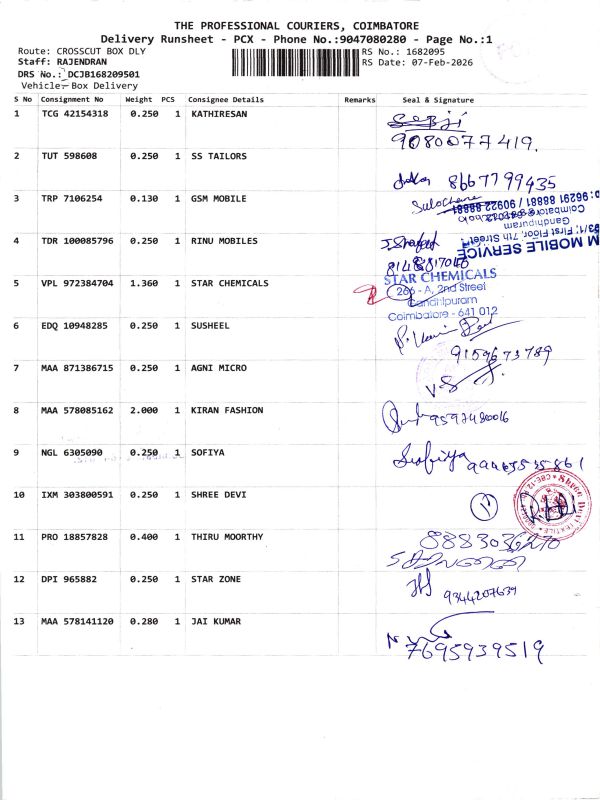 THE PROFESSIONAL COURIERS, COIMBATORE
Delivery Runsheet - PCX - Phone No.:9047080280 - Page No.:1
Route: CROSSCUT BOX DLY RS No.: 1682095
Staff: RAJENDRAN RS Date: 07-Feb-2026
DRS No.: DCJB168209501
Vehicle- Box Delivery
S No Consignment No Weight PCS Consignee Details Remarks Seal & Signature
1 TCG 42154318 0.250 1 KATHIRESAN
9080077419.
2 TUT 598608 0.250 1 SS TAILORS
8667799435
3 TRP 7106254 0.130 1 GSM MOBILE Sulochana
96291 88881 / 90922 88881
Coimbatore
Gandhipuram
93/1, First Floor, 7th Street
M MOBILE SERVICE
4 TDR 100085796 0.250 1 RINU MOBILES
8148817046
5 VPL 972384704 1.360 1 STAR CHEMICALS STAR CHEMICALS
266 - A, 2nd Street
Gandhipuram
Coimbatore - 641 012
6 EDQ 10948285 0.250 1 SUSHEEL
9159673789
7 MAA 871386715 0.250 1 AGNI MICRO
8 MAA 578085162 2.000 1 KIRAN FASHION 9597480016
9 NGL 6305090 0.250 1 SOFIYA Sofiya
10 IXM 303800591 0.250 1 SHREE DEVI Shree Devi Textile
11 PRO 18857828 0.400 1 THIRU MOORTHY 8883036270
12 DPI 965882 0.250 1 STAR ZONE 9344207639
13 MAA 578141120 0.280 1 JAI KUMAR
7695939519